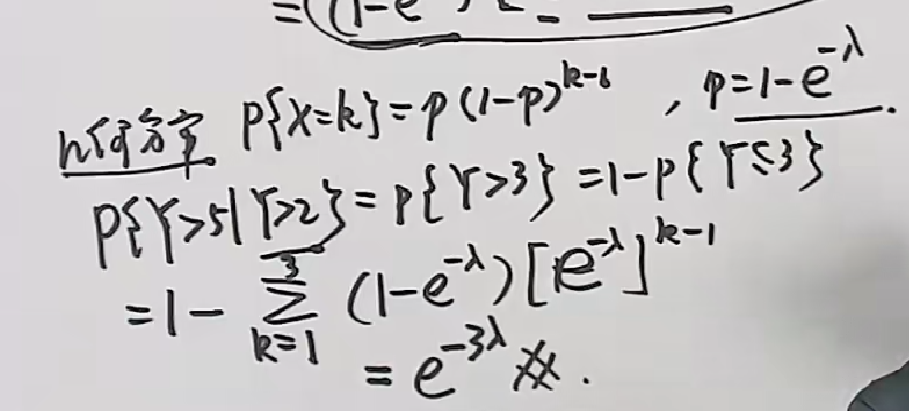 =(1-e
几何分布. P{X=k}=p(1-p)^{k-1}, p=1-e^{-λ}.
P{Y>5|Y>2}=P{Y>3}=1-P{Y≤3}
=1-\sum_{k=1}^{3}(1-e^{-λ})[e^{-λ}]^{k-1}
=e^{-3λ} ※.